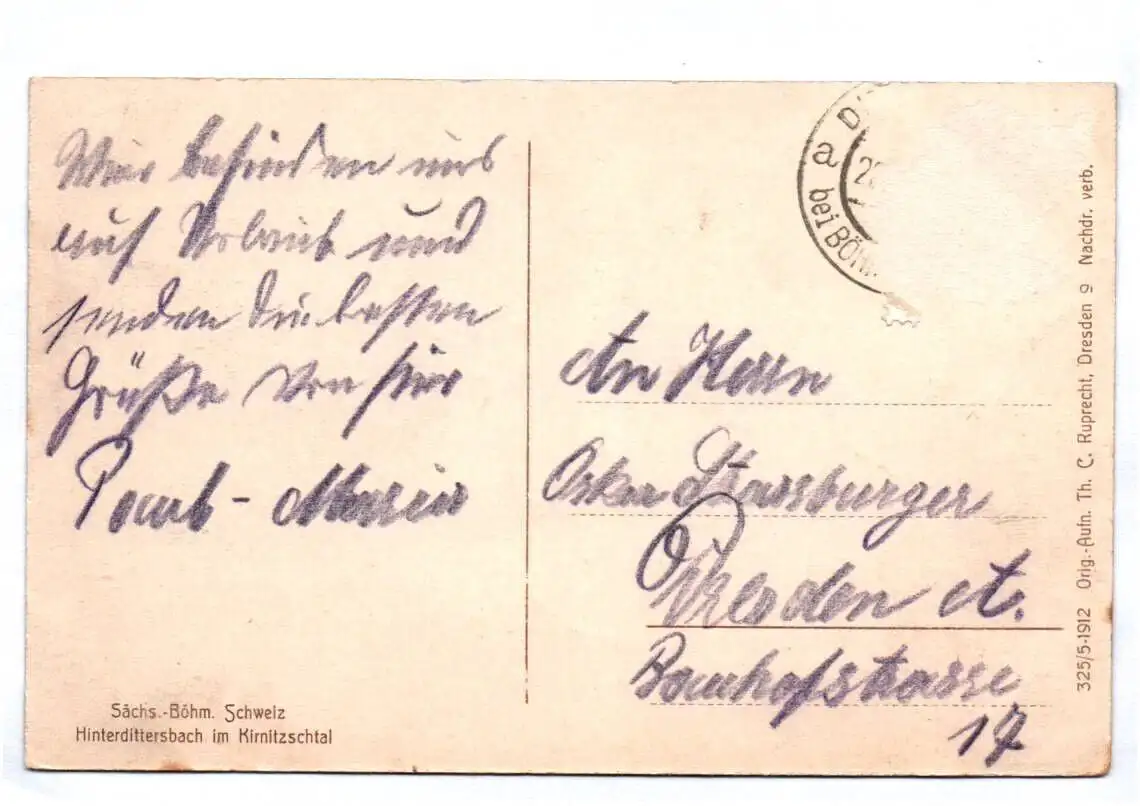 Wir befinden uns
auf Urlaub und
senden die besten
Grüße von hier
Paul - Marie
Sächs.-Böhm. Schweiz
Hinterdittersbach im Kirnitzschtal
a
bei BÖHM
An Herrn
Oskar Strassburger
Dresden A.
strasse
17
325/5-1912 Orig.-Aufn. Th. C. Ruprecht, Dresden 9 Nachdr. verb.